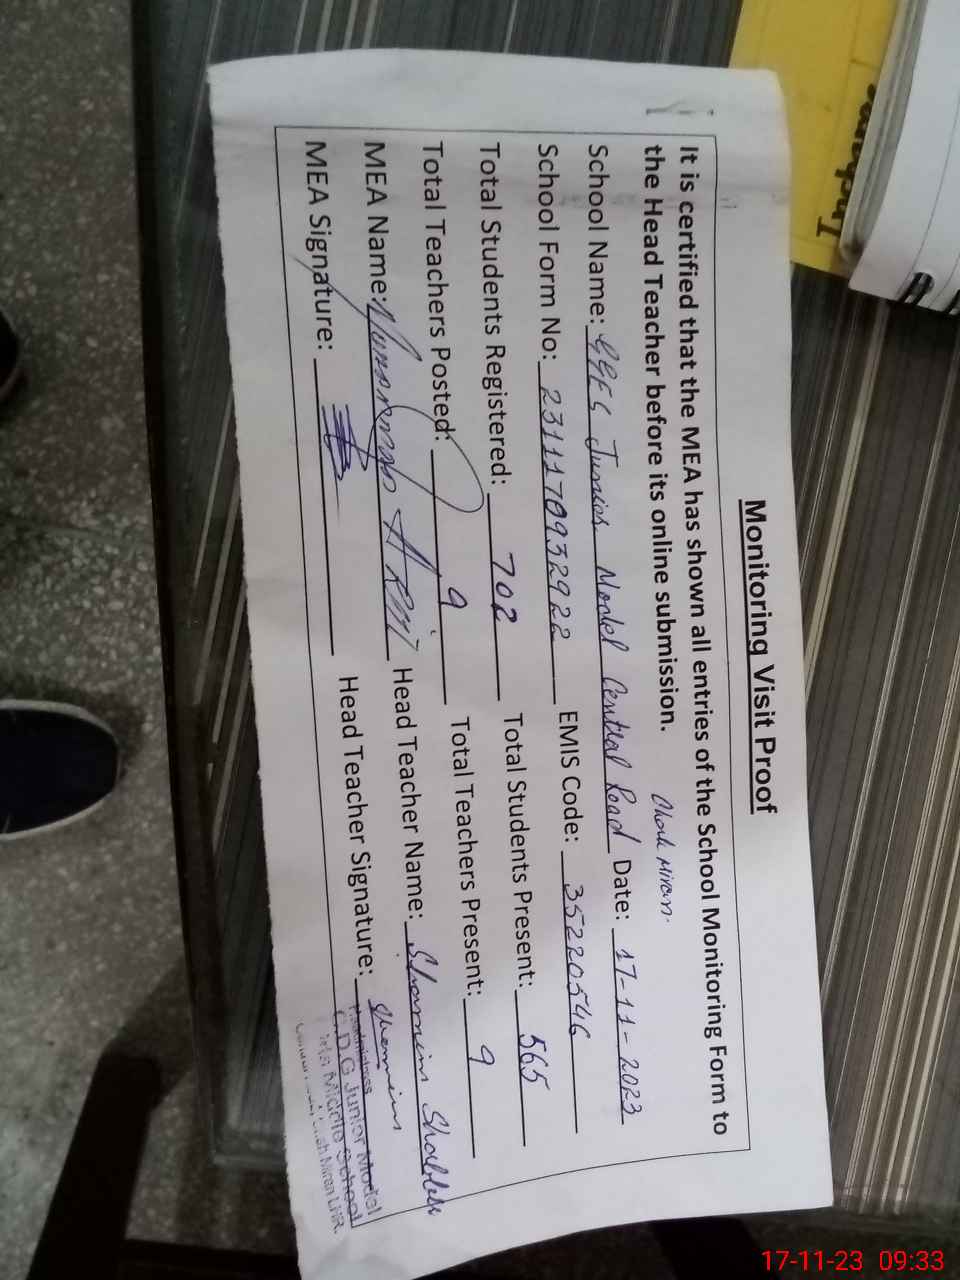 Monitoring Visit Proof
It is certified that the MEA has shown all entries of the School Monitoring Form to
the Head Teacher before its online submission.
School Name: GGES Junior Model Central Road Date: 17-11-2023
School Form No: 23111709932922 EMIS Code: 35220546
Total Students Registered: 702 Total Students Present: 565
Total Teachers Posted: 9 Total Teachers Present: 9
MEA Name: Head Teacher Name: Shamim
MEA Signature: Head Teacher Signature: Shamim
Headmistress
C.D.G Junior Model
Middle School
Miran LHR.
17-11-23 09:33